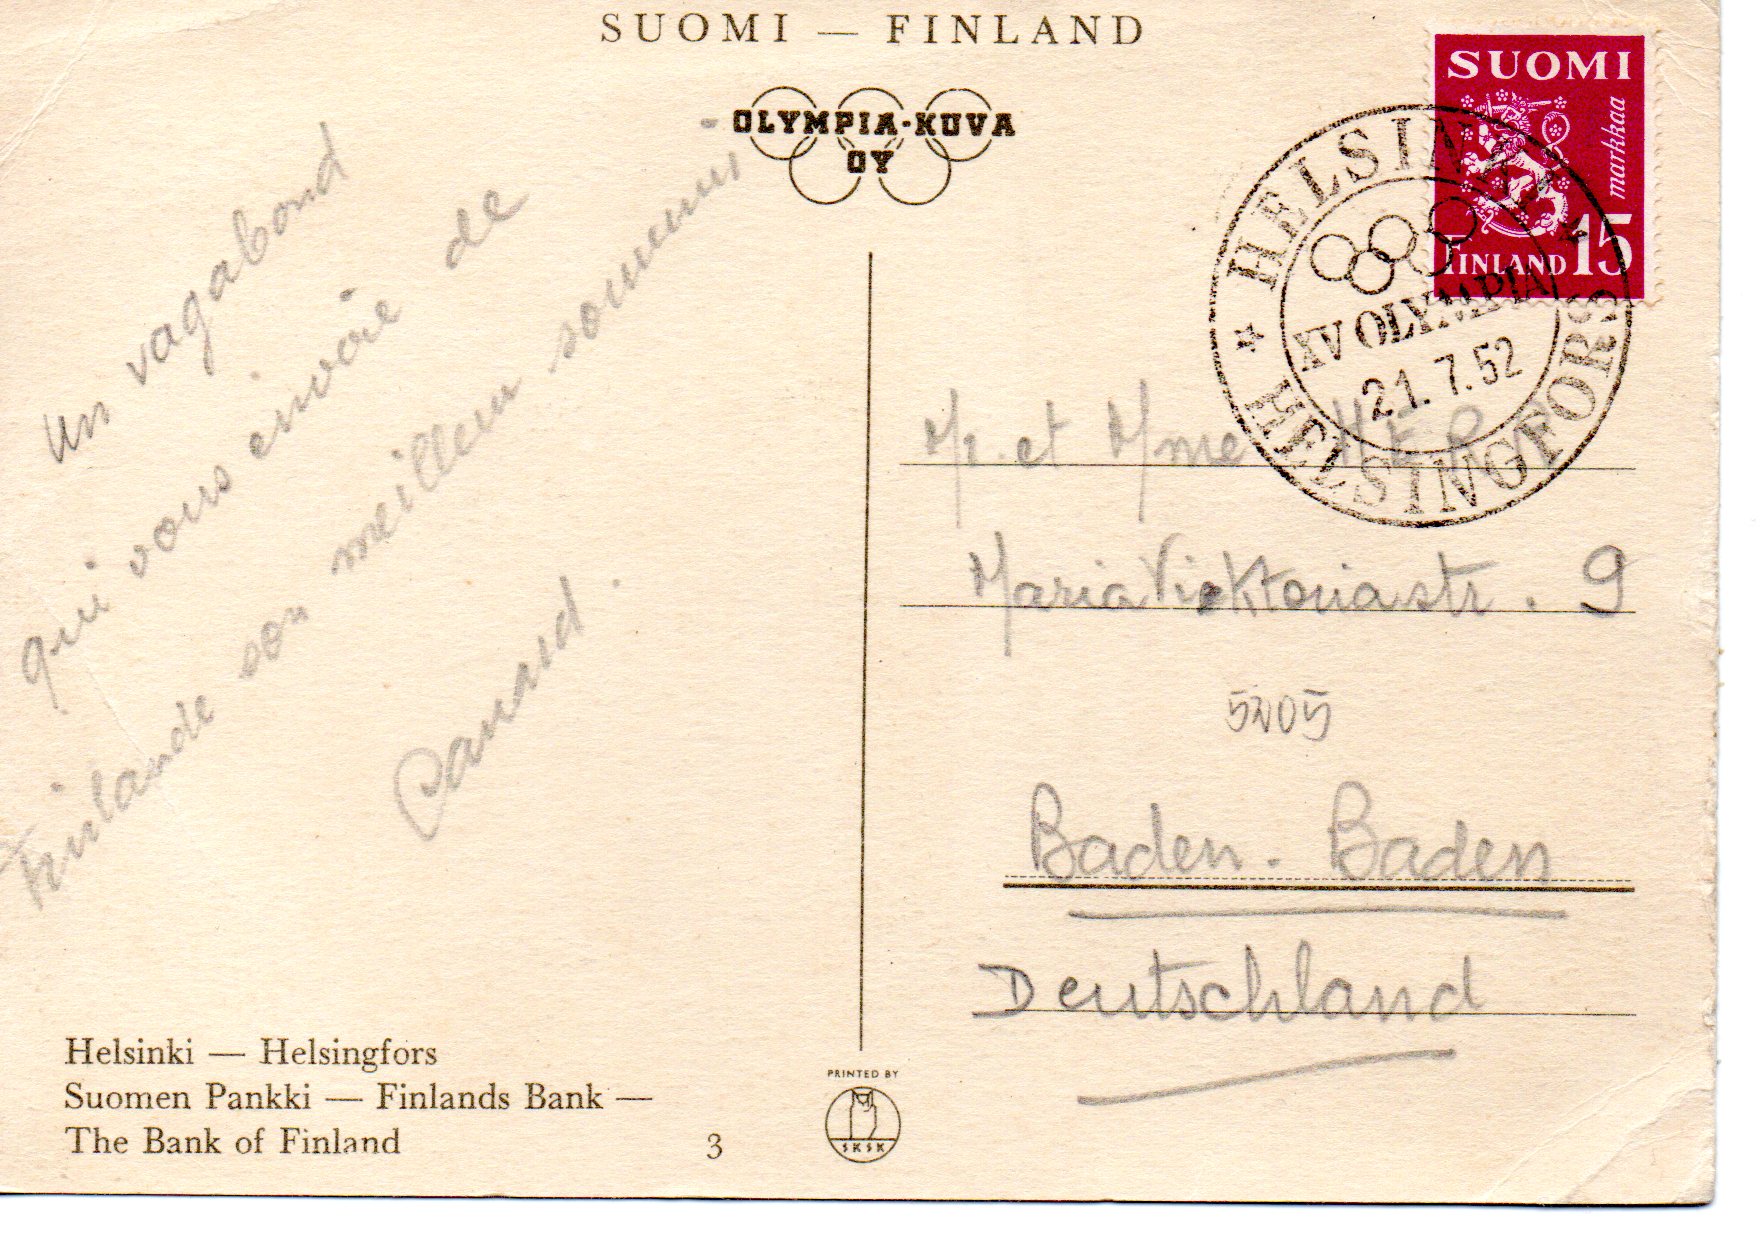 SUOMI — FINLAND
OLYMPIA-KUVA
OY
SUOMI
markkaa
FINLAND 15
HELSINKI
HELSINGFORS
XV OLYMPIA
21.7.52
un vagabond
qui vous envoie de
Finlande son meilleur souvenir
M. et Mme
Maria Viktoriastr. 9
5205
Baden-Baden
Deutschland
Helsinki — Helsingfors
Suomen Pankki — Finlands Bank —
The Bank of Finland
3
PRINTED BY
SKSK